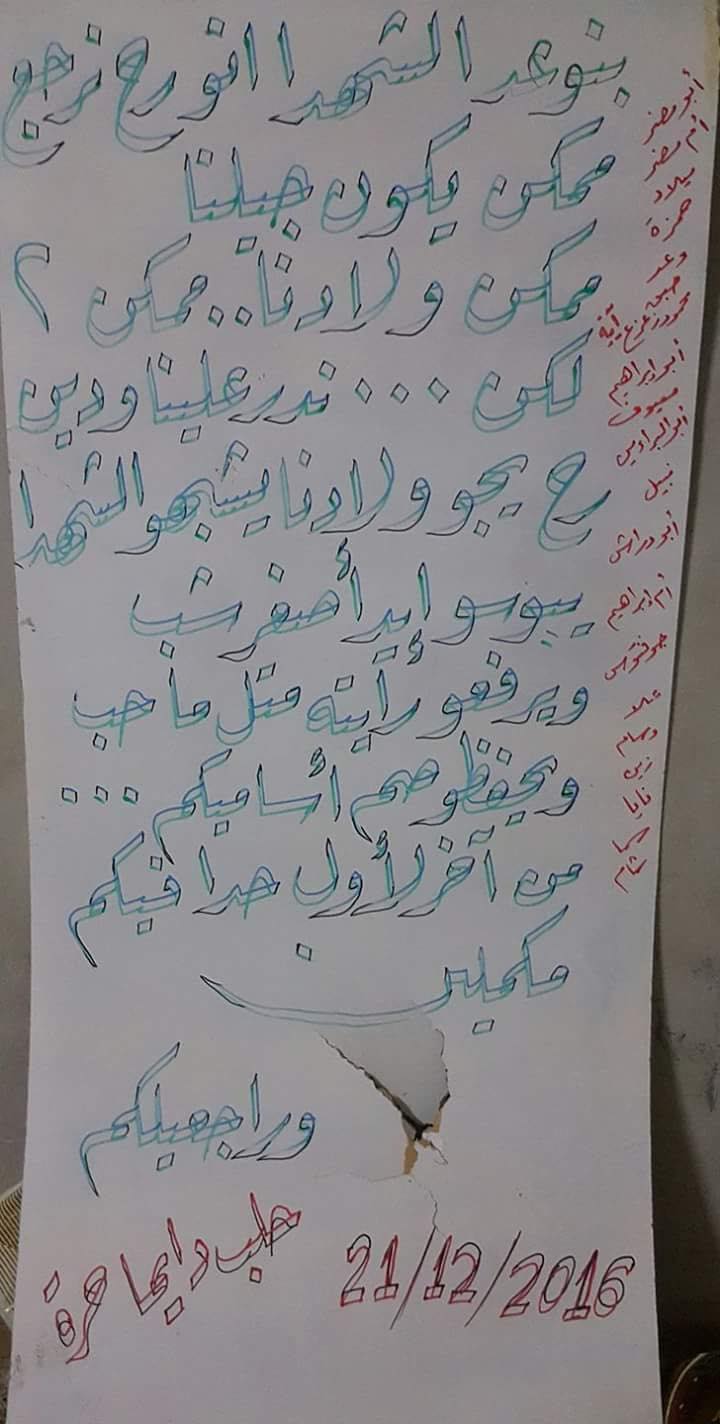 بنوعد الشهدا انو رح نرجع
ممكن يكون جيلنا
ممكن ولادنا.. ممكن ؟
لكن ... ندر علينا ودين
رح يجو ولادنا يشبهو الشهدا
يبوسو ايد أصغر شب
ويرفعو رأيته متل ما حب
ويحفظوهم أساميكم ...
من آخر لأول حدا فيكم
مكملين
وراجعيلكم
حلب دايما حرة
21/12/2016
أبو مضر
أم مضر
ميلاد
حمزة
وعد
صبحه
محمود زعزع آية
أبو ابراهيم
معيوف
أبو البراديس
نبيل
أبو دراش
أم ابراهيم
علا
وسام
زين
نايا
سما
شام